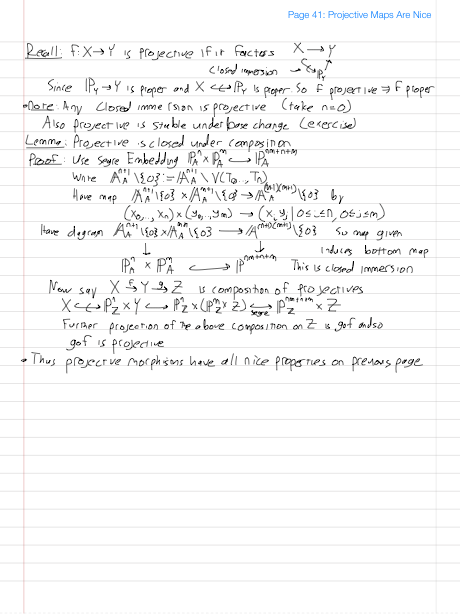 Page 41: Projective Maps Are Nice
Recall: f: X → Y is projective if it factors X → Y
closed immersion ↪ ℙ^n_Y
Since ℙ^n_Y → Y is proper and X ↪ ℙ^n_Y is proper. So f projective ⇒ f proper
• Note: Any closed immersion is projective (take n=0)
Also projective is stable under base change (exercise)
Lemma: Projective is closed under composition
Proof: Use Segre Embedding ℙ^n_A × ℙ^m_A ↪ ℙ^{nm+n+m}_A
Write 𝔸^{n+1}_A \ {0} := 𝔸^{n+1}_A \ V(T_0, .., T_n)
Have map 𝔸^{n+1}_A \ {0} × 𝔸^{m+1}_A \ {0} → 𝔸^{(n+1)(m+1)}_A \ {0} by
(x_0, .., x_n) × (y_0, .., y_m) → (x_i y_j | 0≤i≤n, 0≤j≤m)
Have diagram 𝔸^{n+1}_A \ {0} × 𝔸^{m+1}_A \ {0} → 𝔸^{(n+1)(m+1)}_A \ {0} So map given
↓ ↓ induces bottom map
ℙ^n_A × ℙ^m_A ↪ ℙ^{nm+n+m} This is closed immersion
Now say X →^f Y →^g Z is composition of projectives
X ↪ ℙ^n_Z × Y ↪ ℙ^n_Z × (ℙ^m_Z × Z) ↪_{segre} ℙ^{nm+n+m}_Z × Z
Further projection of the above composition on Z is g∘f and so
g∘f is projective
• Thus projective morphisms have all nice properties on previous page